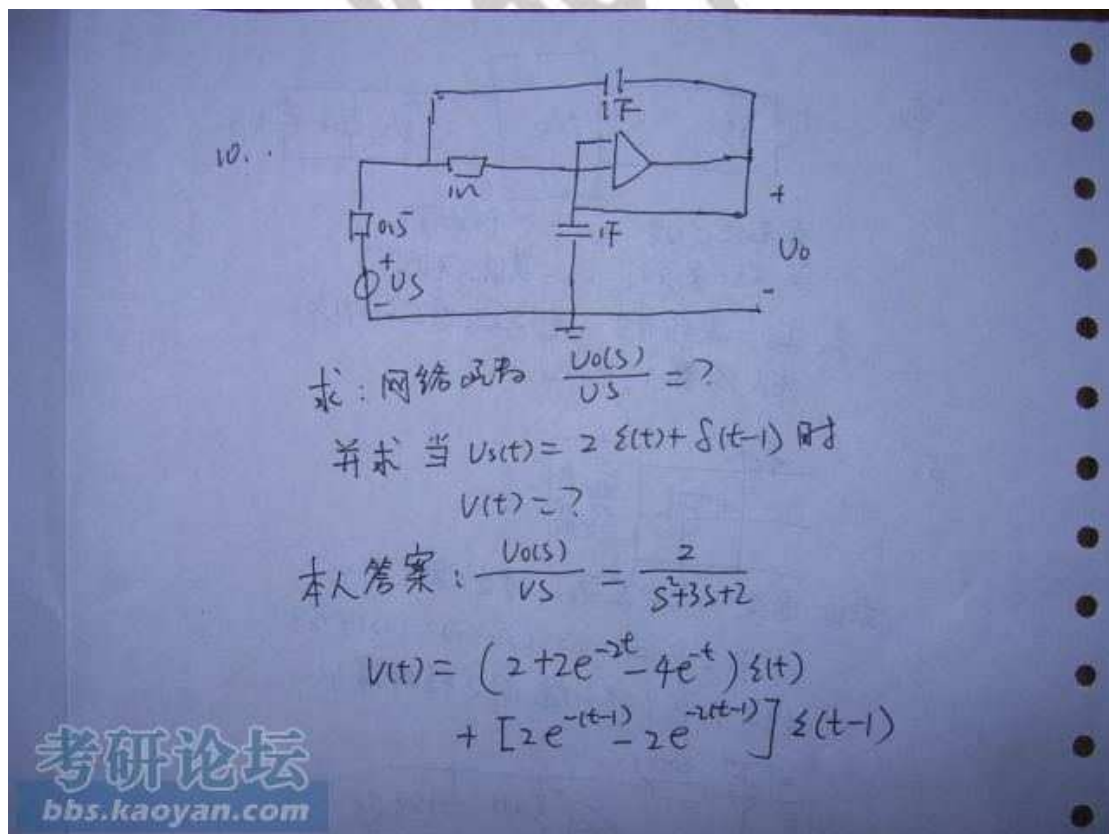 1F
10..
1Ω
0.5
+
1F
+
US
-
U0
-
求：网络函数 U0(S)/US =?
并求 当 Us(t)= 2 ε(t)+ δ(t-1) 时
U(t)=?
本人答案：U0(S)/US = 2/(S²+3S+2)
U(t)= (2+2e^{-2t}-4e^{-t}) ε(t)
+ [2e^{-(t-1)}-2e^{-2(t-1)}] ε(t-1)
考研论坛
bbs.kaoyan.com